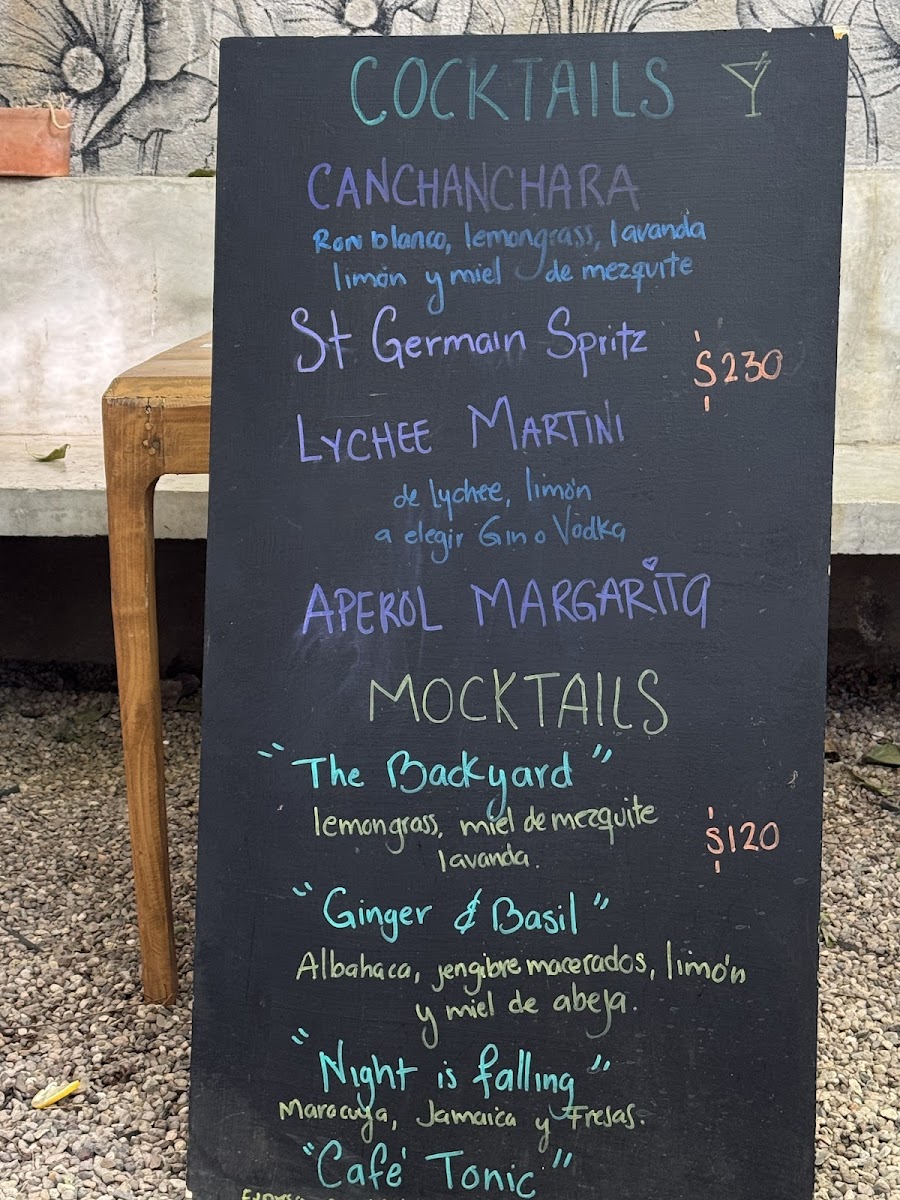 COCKTAILS
CANCHANCHARA
Ron blanco, lemongrass, lavanda
limón y miel de mezquite
St Germain Spritz
$230
LYCHEE MARTINI
de lychee, limón
a elegir Gin o Vodka
APEROL MARGARITA
MOCKTAILS
"The Backyard"
lemongrass, miel de mezquite
lavanda.
$120
"Ginger & Basil"
Albahaca, jengibre macerados, limón
y miel de abeja.
"Night is falling"
Maracuya, Jamaica y Fresas.
"Café Tonic"